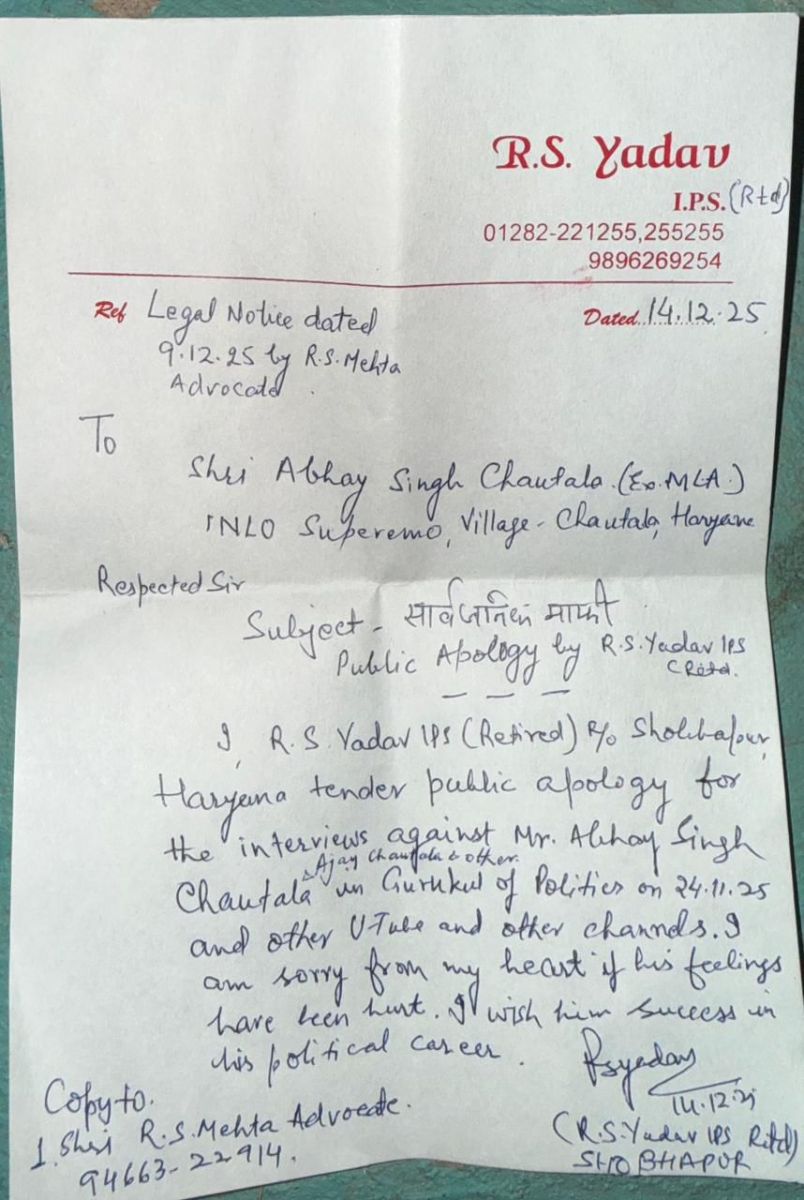 R.S. Yadav
I.P.S. (Rtd)
01282-221255,255255
9896269254
Ref Legal Notice dated
9.12.25 by R.S. Mehta
Advocate.
Dated 14.12.25
To
Shri Abhay Singh Chautala (Ex. MLA.)
INLO Superemo, Village - Chautala, Haryana
Respected Sir
Subject - सार्वजनिक माफी
Public Apology by R.S. Yadav IPS
(Retd.
I, R.S. Yadav IPS (Retired) R/o Shobhapur,
Haryana tender public apology for
the interviews against Mr. Abhay Singh
Ajay Chautala & other.
Chautala in Gurukul of Politics on 24.11.25
and other U-Tube and other channels. I
am sorry from my heart if his feelings
have been hurt. I wish him success in
his political career.
Rsyadav
14.12.25
(R.S. Yadav IPS Retd)
SHOBHAPUR
Copy to.
1. Shri R.S. Mehta Advocate.
94663-22914.